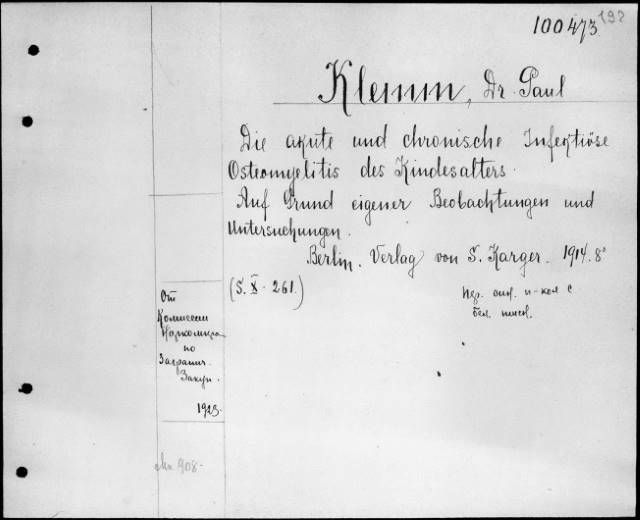 100473
192
Klemm, Dr. Paul
Die akute und chronische Infektiöse
Osteomyelitis des Kindesalters.
Auf Grund eigener Beobachtungen und
Untersuchungen.
Berlin. Verlag von S. Karger. 1914. 8°
(S. X. 261.)
Пер. с
бел.
От
Комиссии
Наркомпра
по
Загранич.
Закуп.
1923.
908.